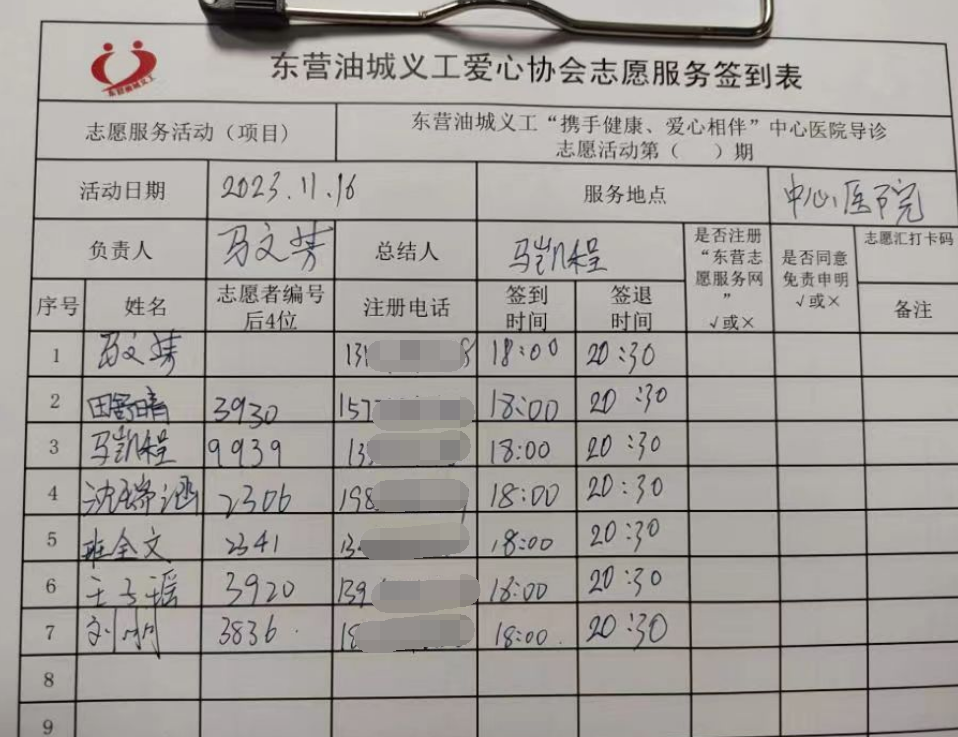 东营油城义工
东营油城义工爱心协会志愿服务签到表
志愿服务活动（项目） 东营油城义工“携手健康、爱心相伴”中心医院导诊
志愿活动第（ ）期
活动日期 2023.11.16 服务地点 中心医院
负责人 马文芳 总结人 马凯程 是否注册“东营志愿服务网”√或× 是否同意免责申明√或× 志愿汇打卡码
序号 姓名 志愿者编号后4位 注册电话 签到时间 签退时间 备注
1 马文芳 13 8 18:00 20:30
2 田舒晴 3930 157 18:00 20:30
3 马凯程 9939 13 18:00 20:30
4 沈瑞涵 2306 198 18:00 20:30
5 班全文 2341 13 18:00 20:30
6 王子瑶 3920 139 18:00 20:30
7 刘 3836 18 18:00 20:30
8
9